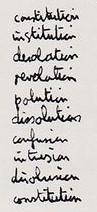 constitution
institution
desolation
revolution
polution
dissolution
confusion
intrusion
disolusion
constitution